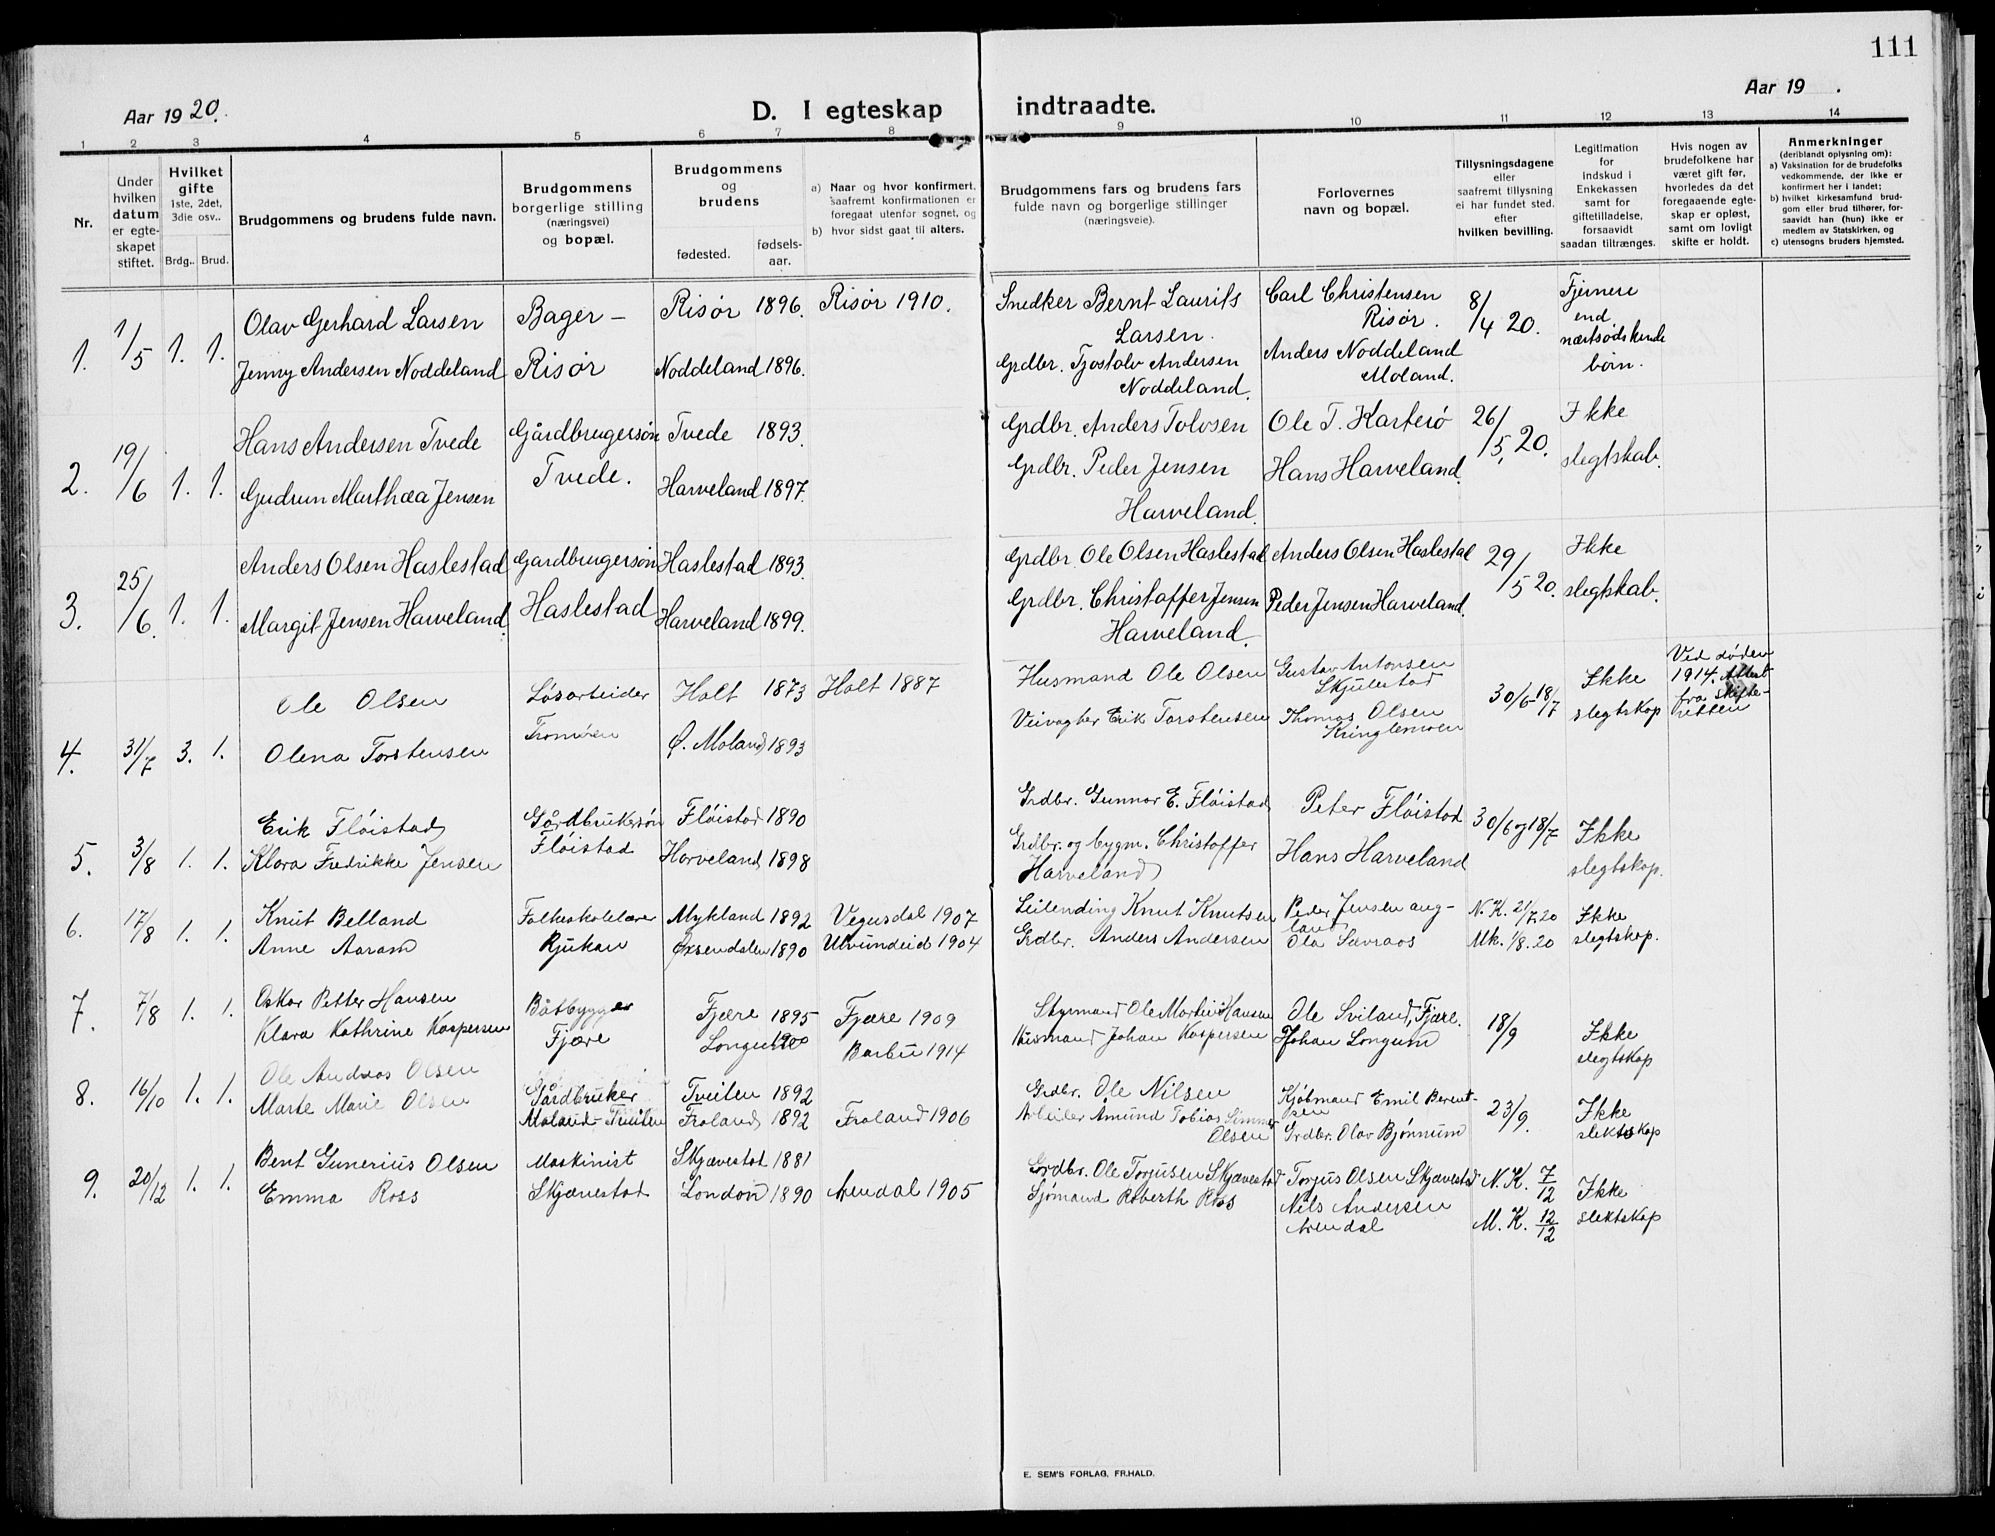 111
Aar 1920.
D. I egteskap indtraadte.
Aar 19 .
1 2 3 4 5 6 7 8 9 10 11 12 13 14
Nr.
Under hvilken datum er egteskapet stiftet.
Hvilket gifte
1ste, 2det, 3die osv..
Brdg.. Brud.
Brudgommens og brudens fulde navn.
Brudgommens borgerlige stilling (næringsvei) og bopæl.
Brudgommens og brudens
fødested.
fødselsaar.
a) Naar og hvor konfirmert, saafremt konfirmationen er foregaat utenfor sognet, og
b) hvor sidst gaat til alters.
Brudgommens fars og brudens fars fulde navn og borgerlige stillinger (næringsveie).
Forlovernes navn og bopæl.
Tillysningsdagene eller saafremt tillysning ei har fundet sted. efter hvilken bevilling.
Legitimation for indskud i Enkekassen samt for giftetilladelse, forsaavidt saadan tiltrænges.
Hvis nogen av brudefolkene har været gift før, hvorledes da det foregaaende egteskap er opløst, samt om lovligt skifte er holdt.
Anmerkninger
(deriblandt oplysning om):
a) Vaksination for de brudefolks vedkommende, der ikke er konfirmert her i landet;
b) hvilket kirkesamfund brudgom eller brud tilhører, forsaavidt han (hun) ikke er medlem av Statskirken, og
c) utensogns bruders hjemsted.
1. 1/5 1. 1. Olav Gerhard Larsen Bager – Risør 1896. Risør 1910. Snedker Bernt Laurits Larsen. Carl Christensen Risør. 8/4 20. Fjernere end nærtsødskende børn.
Jenny Andersen Noddeland Risør Noddeland 1896. Grdbr. Tjostolv Andersen Noddeland. Anders Noddeland Moland.
2. 19/6 1. 1. Hans Andersen Tvede Gårdbrugersøn Tvede 1893. Grdbr. Anders Tolvsen Ole T. Karterø 26/5. 20. Ikke slegtskab.
Gudrun Marthea Jensen Tvede. Harveland 1897. Grdbr. Peder Jensen Harveland. Hans Harveland.
3. 25/6. 1. 1. Anders Olsen Haslestad Gardbrugersøn Haslestad 1893. Grdbr. Ole Olsen Haslestad Anders Olsen Haslestad 29/5 20. Ikke slegtskab.
Margit Jensen Harveland. Haslestad Harveland 1899. Grdbr. Christoffer Jensen Harveland. Peder Jensen Harveland.
4. 31/7 3. 1. Ole Olsen Løsarbeider Holt 1873 Holt 1887 Husmand Ole Olsen Gustav Antonsen Skjulestad 30/6-18/7 Ikke slegtskap Ved døden 1914. Attest fra skifteretten
Olena Torstensen Tromøen Ø. Moland 1893 Veivogter Erik Torstensen Thomas Olsen Kringlemoen
5. 3/8 1. 1. Erik Fløistad Gårdbrukersøn Fløistad 1890 Grdbr. Gunnar E. Fløistad Peter Fløistad 30/6 og 18/7 Ikke slegtskap.
Klara Fredrikke Jensen Fløistad Harveland 1898 Grdbr. og bygm. Christoffer Harveland Hans Harveland
6. 17/8 1. 1. Knut Belland Folkeskolelærer Mykland 1892 Vegusdal 1907 Leilending Knut Knutsen Peder Jensen Augland N.K. 21/7.20 Ikke slegtskap.
Anne Aaram Rjukan Øksendalen 1890 Ulvundeid 1904 Grdbr. Anders Andersen Ola Sævraas Mk. 1/8. 20
7. 7/8 1. 1. Oskar Petter Hansen Båtbygger Fjære 1895 Fjære 1909 Styrmand Ole Martin Hansen Ole Sviland, Fjære. 18/9 Ikke slegtskap
Klara Kathrine Kaspersen Fjære Longum 1900 Barbu 1914 Husmand Johan Kaspersen Johan Longum
8. 16/10 1. 1. Ole Andreas Olsen Gårdbruker Tveiten 1892 Grdbr. Ole Nilsen Kjøbmand Emil Berentsen 23/9. Ikke slektskap
Marte Marie Olsen Moland–Tveiten Froland 1892 Froland 1906 Arbeider Amund Tobias Olsen Grdbr. Olav Bjønnum
9. 20/12 1. 1. Bent Gunerius Olsen Maskinist Skjævestad 1881 Gordbr. Ole Torjusen Skjævestad Torjus Olsen Skjævestad N.K. 7/12 Ikke slektskap
Emma Ross Skjævestad London 1890 Arendal 1905 Sjømand Roberth Ross Nils Andersen Arendal M.K. 12/12
E. SEM'S FORLAG, FR.HALD.